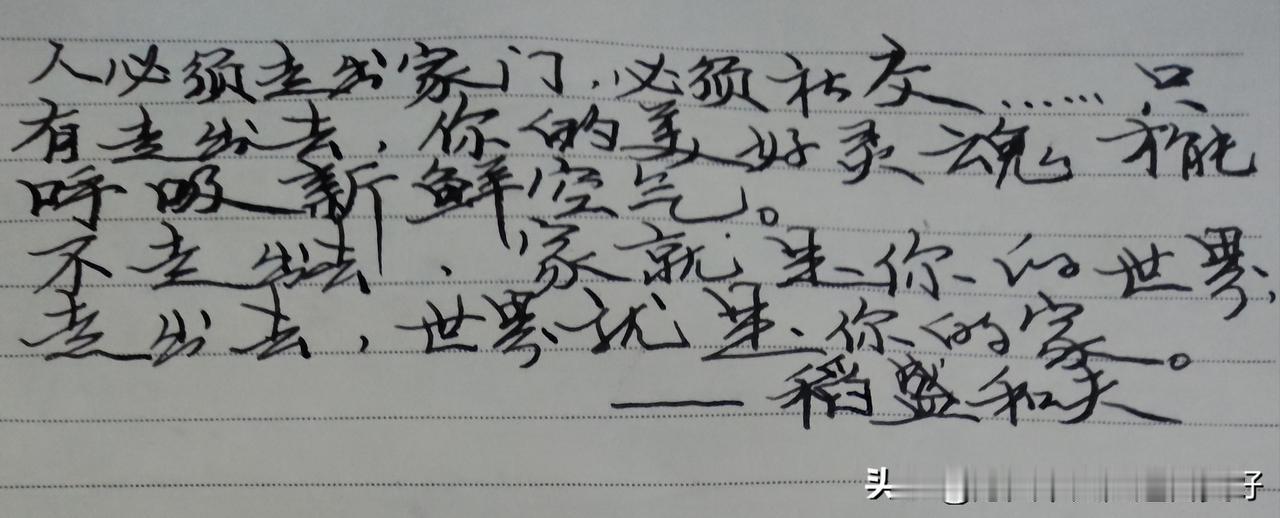 人必须走出家门，必须社交……只
有走出去，你的美好灵魂才能
呼吸新鲜空气。
不走出去，家就是你的世界，
走出去，世界就是你的家。
——稻盛和夫
头
子